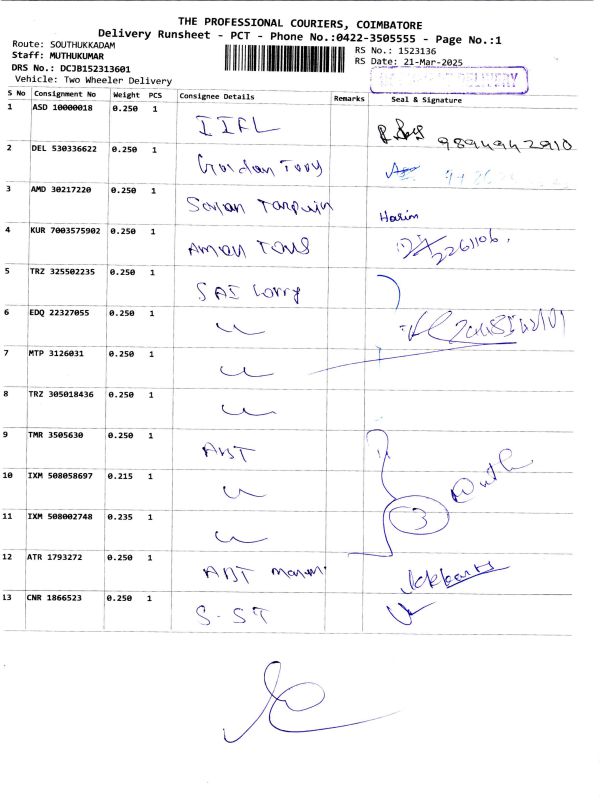 THE PROFESSIONAL COURIERS, COIMBATORE
Delivery Runsheet - PCT - Phone No.:0422-3505555 - Page No.:1
Route: SOUTHUKKADAM
RS No.: 1523136
Staff: MUTHUKUMAR
RS Date: 21-Mar-2025
DRS No.: DCJB152313601
Vehicle: Two Wheeler Delivery
DELIVERY
S No Consignment No Weight PCS Consignee Details Remarks Seal & Signature
1 ASD 10000018 0.250 1 IIFL 9894942910
2 DEL 530336622 0.250 1
3 AMD 30217220 0.250 1 Harim
4 KUR 7003575902 0.250 1 2261106.
5 TRZ 325502235 0.250 1 SAI Lorry
6 EDQ 22327055 0.250 1
7 MTP 3126031 0.250 1
8 TRZ 305018436 0.250 1
9 TMR 3505630 0.250 1 ABT
10 IXM 508058697 0.215 1
11 IXM 508002748 0.235 1 3
12 ATR 1793272 0.250 1 ABT
13 CNR 1866523 0.250 1 S-ST